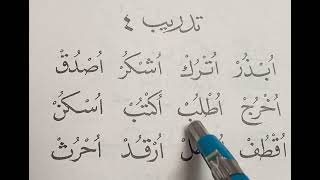 تدريب ٤
اُبْذُرْ اُتْرُكْ اُشْكُرْ اُصْدُقْ
اُخْرُجْ اُطْلُبْ اُكْتُبْ اُسْكُنْ
اُقْطُفْ اُرْقُدْ اُحْرُثْ